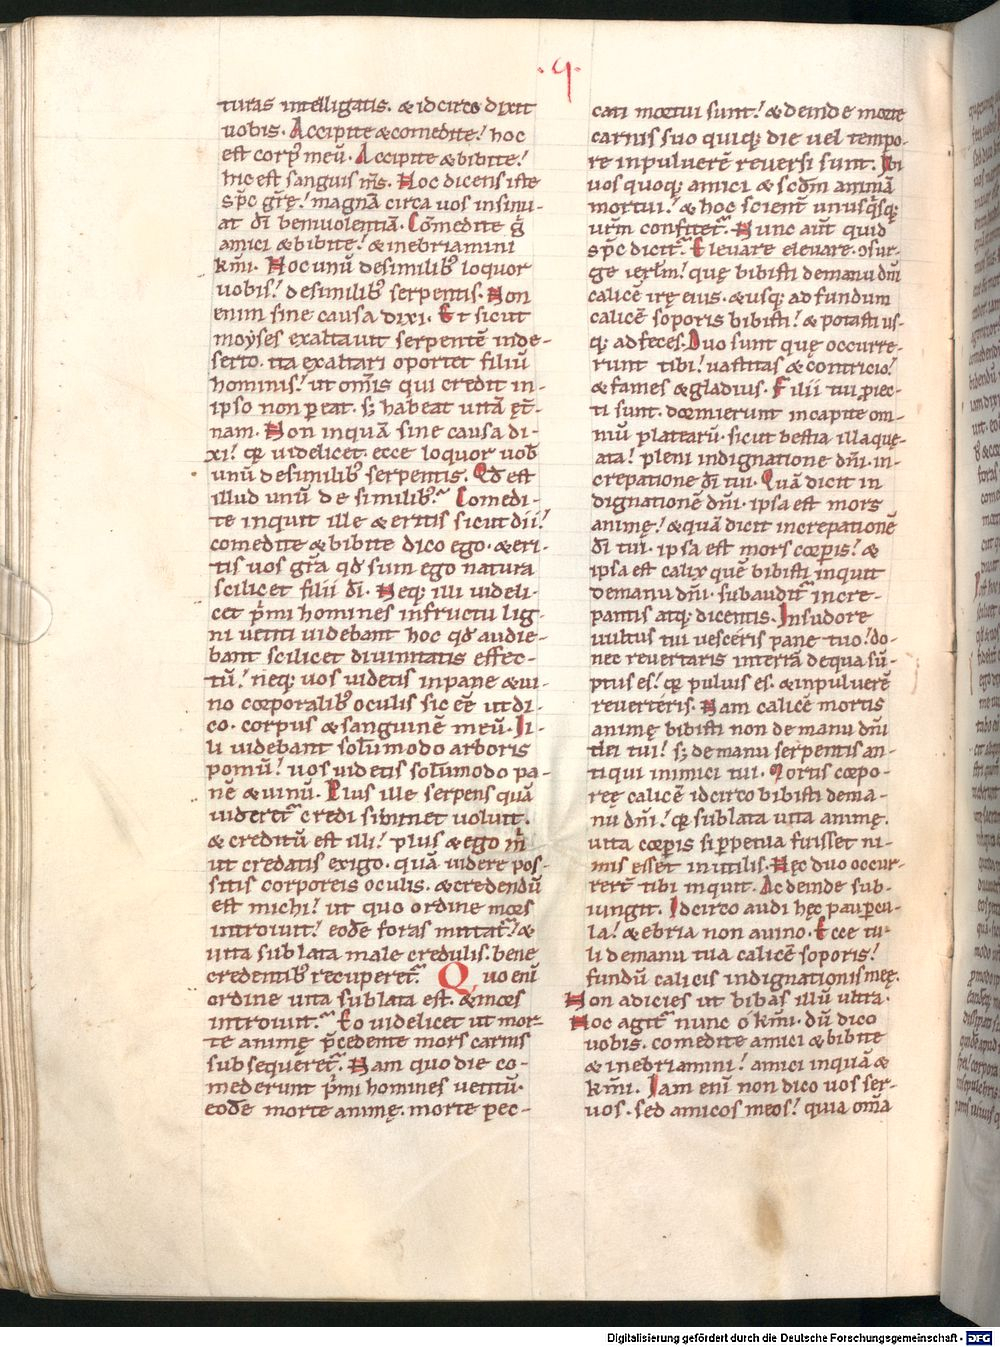 ·q·
turas intelligatis. & idcirco dixit
uobis. Accipite & comedite! hoc
est corp᷒ meū. Accipite & bibite!
hic est sanguis m̄s. Hoc dicens iste
sp̄c grę! magnā circa uos insinu-
at dī beniuolentiā. Cōmedite ḡ
amici & bibite! & inebriamini
k̄mi. Hoc unū de similib᷒ loquor
uobis! de similib᷒ serpentis. Non
enim sine causa dixi. Et sicut
moẏses exaltauit serpentē inde-
serto. ita exaltari oportet filiū
hominis! ut om̄is qui credit in-
ipso non ꝑeat. sꝫ habeat uitā ęt̄-
nam. Non inquā sine causa di-
xi! qr uidelicet. ecce loquor uob̄
unū de similib᷒ serpentis. Qd̄ est
illud unū de similib᷒. Comedi-
te inquit ille & eritis sicut dii!
comedite & bibite dico ego. & eri-
tis uos gr̄a qd̄ sum ego natura
scilicet filii dī. Neqꝫ illi uideli-
cet p̄mi homines in fructu lig-
ni uetiti uidebant hoc qd̄ audie-
bant scilicet diuinitatis effec-
tū! neqꝫ uos uidetis in pane & ui-
no corporalib᷒ oculis sic eē ut di-
co. corpus & sanguinē meū. Il-
li uidebant solūmodo arboris
pomū! uos uidetis solūmodo pa-
nē & uinū. Plus ille serpens quā
uideret᷑ credi sibimet uoluit.
& creditū est illi! plus & ego m̄
ut credatis exigo. quā uidere pos-
sitis corporeis oculis. & credendū
est michi! ut quo ordine mors
introiuit! eodē foras mittat᷑! &
uita sublata male credulis. bene
credentib᷒ recuperet᷑. Quo enī
ordine uita sublata est. & mors
introiuit᷑. Eo uidelicet ut mor-
te animę p̄cedente mors carnis
subsequeret᷑. Nam quo die co-
mederunt p̄mi homines uetitū.
eodē morte animę. morte pec-
cati mortui sunt! & deinde morte
carnis suo quiqꝫ die uel tempo-
re in puluerē reuersi sunt. Ibi
uos quoqꝫ amici & scdm animā
mortui! & hoc scient unusq̄sqꝫ
ur̄m confitet᷑. Nunc aūt quid
sp̄c dicit᷑. Eleuare eleuare. ꝯsur-
ge ierl̄m! quę bibisti de manu dn̄i
calicē irę eius. & usqꝫ ad fundum
calicē soporis bibisti! & potasti us-
qꝫ ad feces. Duo sunt quę occurre-
runt tibi! uastitas & contricio!
& fames & gladius. Filii tui ꝓiec-
ti sunt. dormierunt in capite om-
niū platearū. sicut bestia illaquę-
ata! pleni indignatione dn̄i. in-
crepatione dī tui. Quā dicit in
dignationē dn̄i. ipsa est mors
animę! & quā dicit increpationē
dī tui. ipsa est mors corꝑis! &
ipsa est calix quē bibisti inquit
de manu dn̄i. subaudit᷑ incre-
pantis atqꝫ dicentis. In sudore
uultus tui uesceris pane tuo! do-
nec reuertaris in terrā de qua sū-
ptus es! qr puluis es. & in puluerē
reuerteris. Nam calicē mortis
animę bibisti non de manu dn̄i
dei tui! sꝫ de manu serpentis an-
tiqui inimici tui. Mortis corpo-
reę calicē idcirco bibisti de ma-
nu dn̄i! qr sublata uita animę.
uita corꝑis si ꝑpetua fuisset ni-
mis esset inutilis. Hęc duo occur-
rer̄t tibi inquit. Ac deinde sub-
iungit. Idcirco audi hęc paupercu-
la! & ebria non a uino. Ecce tu-
li de manu tua calicē soporis!
fundū calicis indignationis meę.
Non adicies ut bibas illū ultra.
Hoc agit᷑ nunc ó k̄mi. dū dico
uobis. comedite amici & bibite
& inebriamini! amici inquā &
k̄mi. Iam enī non dico uos ser-
uos. sed amicos meos! quia om̄a
Digitalisierung gefördert durch die Deutsche Forschungsgemeinschaft - DFG